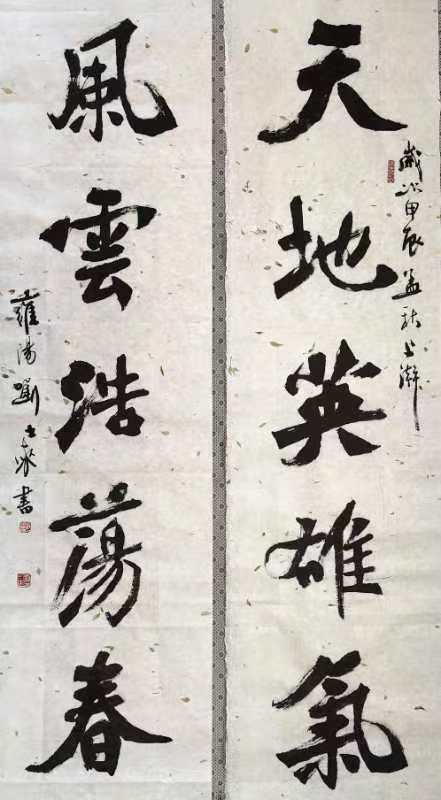 天地英雄氣
歲次甲辰孟秋上澣
風雲浩蕩春
雍陽劉士永書